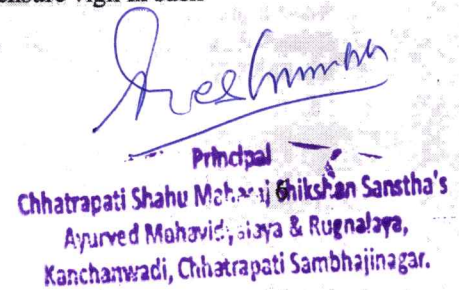 ensure
Principal
Chhatrapati Shahu Maharaj Shikshan Sanstha's
Ayurved Mahavidyalaya & Rugnalaya,
Kanchanwadi, Chhatrapati Sambhajinagar.
6